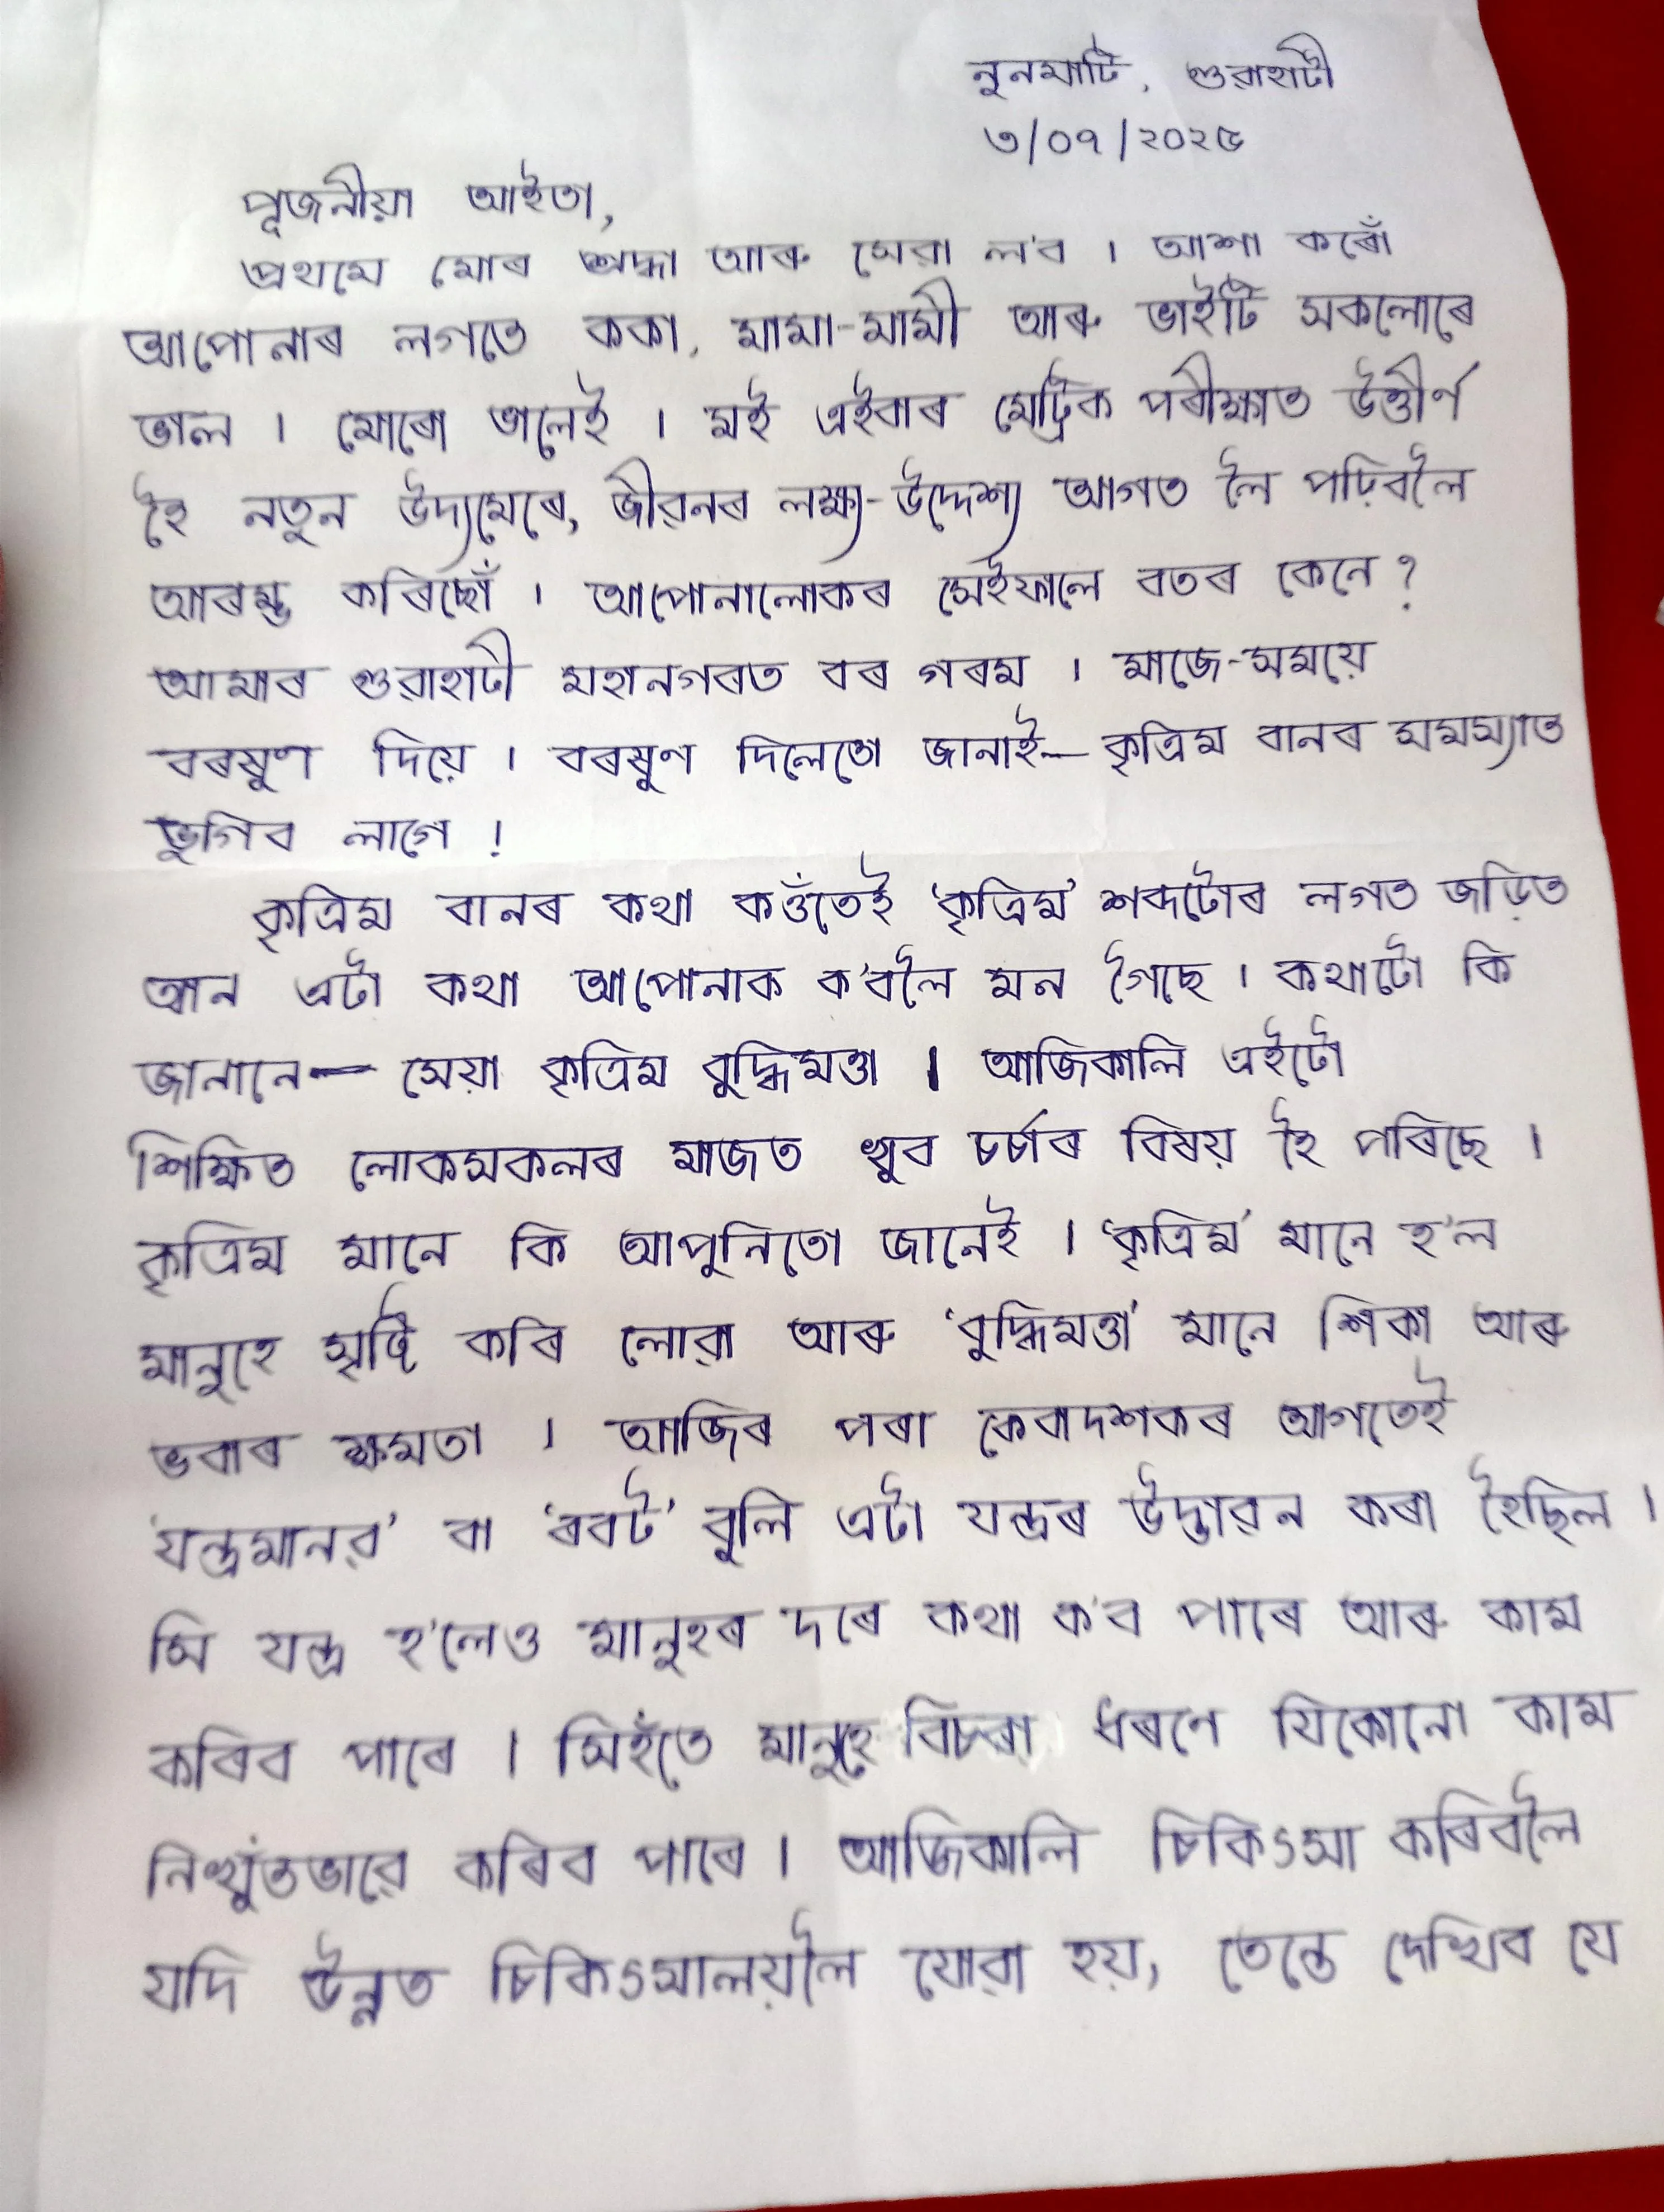 নুনমাটি, গুৱাহাটী
৩/০৭/২০২৫
পূজনীয়া আইতা,
প্ৰথমে মোৰ শ্ৰদ্ধা আৰু সেৱা ল'ব । আশা কৰোঁ
আপোনাৰ লগতে ককা, মামা-মামী আৰু ভাইটি সকলোৰে
ভাল । মোৰো ভালেই । মই এইবাৰ মেট্ৰিক পৰীক্ষাত উত্তীৰ্ণ
হৈ নতুন উদ্যমেৰে, জীৱনৰ লক্ষ্য-উদ্দেশ্য আগত লৈ পঢ়িবলৈ
আৰম্ভ কৰিছোঁ । আপোনালোকৰ সেইফালে বতৰ কেনে ?
আমাৰ গুৱাহাটী মহানগৰত বৰ গৰম । মাজে-সময়ে
বৰষুণ দিয়ে । বৰষুণ দিলেতো জানাই— কৃত্ৰিম বানৰ সমস্যাত
ভুগিব লাগে !
কৃত্ৰিম বানৰ কথা কওঁতেই ‘কৃত্ৰিম’ শব্দটোৰ লগত জড়িত
আন এটা কথা আপোনাক ক'বলৈ মন গৈছে । কথাটো কি
জানানে— সেয়া কৃত্ৰিম বুদ্ধিমত্তা । আজিকালি এইটো
শিক্ষিত লোকসকলৰ মাজত খুব চৰ্চাৰ বিষয় হৈ পৰিছে ।
কৃত্ৰিম মানে কি আপুনিতো জানেই । ‘কৃত্ৰিম’ মানে হ'ল
মানুহে সৃষ্টি কৰি লোৱা আৰু ‘বুদ্ধিমত্তা’ মানে শিকা আৰু
ভবাৰ ক্ষমতা । আজিৰ পৰা কেবাদশকৰ আগতেই
‘যন্ত্ৰমানৱ’ বা ‘ৰবট’ বুলি এটা যন্ত্ৰৰ উদ্ভাৱন কৰা হৈছিল ।
সি যন্ত্ৰ হ'লেও মানুহৰ দৰে কথা ক'ব পাৰে আৰু কাম
কৰিব পাৰে । সিহঁতে মানুহে বিচৰা ধৰণে যিকোনো কাম
নিখুঁতভাৱে কৰিব পাৰে । আজিকালি চিকিৎসা কৰিবলৈ
যদি উন্নত চিকিৎসালয়লৈ যোৱা হয়, তেন্তে দেখিব যে